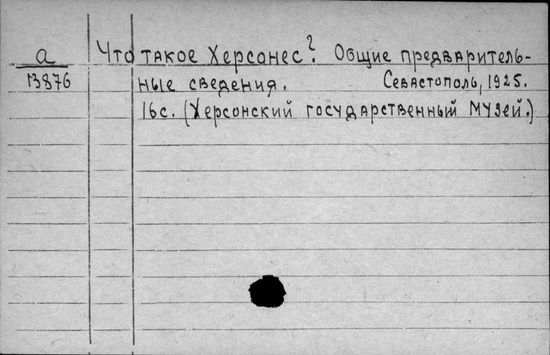 а Что такое Херсонес? Общие предваритель-
13876 ные сведения. Севастополь, 1925.
16с. (Херсонский государственный музей.)